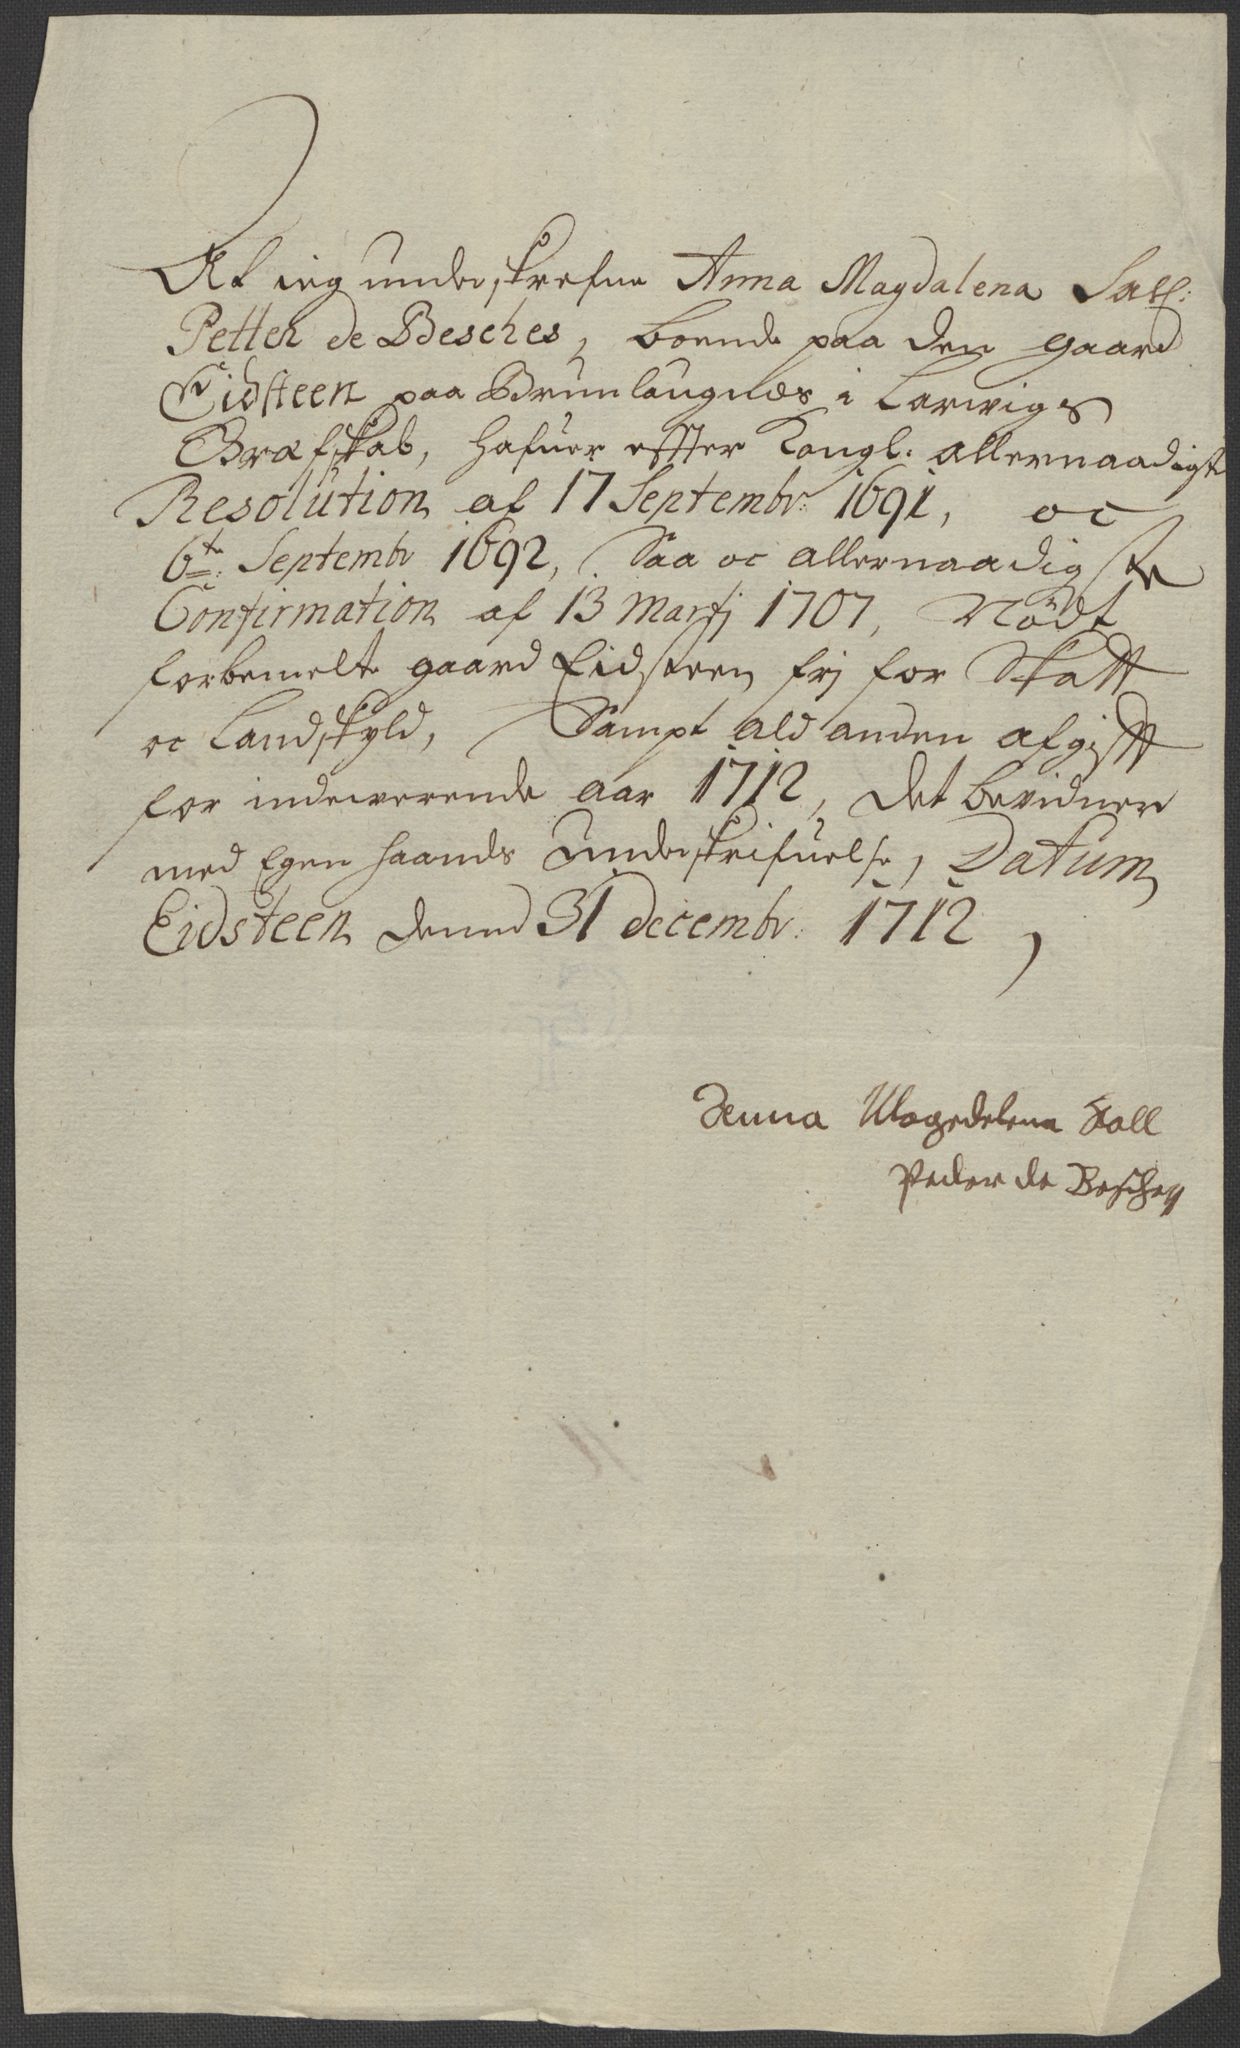 At ieg underskrefne Anna Magdalena Sall:
Petter de Besches, boende paa den gaard
Eidsteen paa Brunlaugnæs i Larwigs
Græfskab, hafuer effter Kongl. allernaadigste
Resolution af 17 Septembr: 1691, oc
6te Septembr 1692, Saa oc allernaadigste
Confirmation af 13 Martj 1707, Nödt
forbemelte gaard Eidsteen frj for Skatt
oc Landskyld, Sampt ald anden afgifft
for indeverende aar 1712, Det bevidner
med Egen haands Underskrifuelse, Datum
Eidsteen denne 31 decembr: 1712,
Anna Magedelena Sall
Peder de Besches